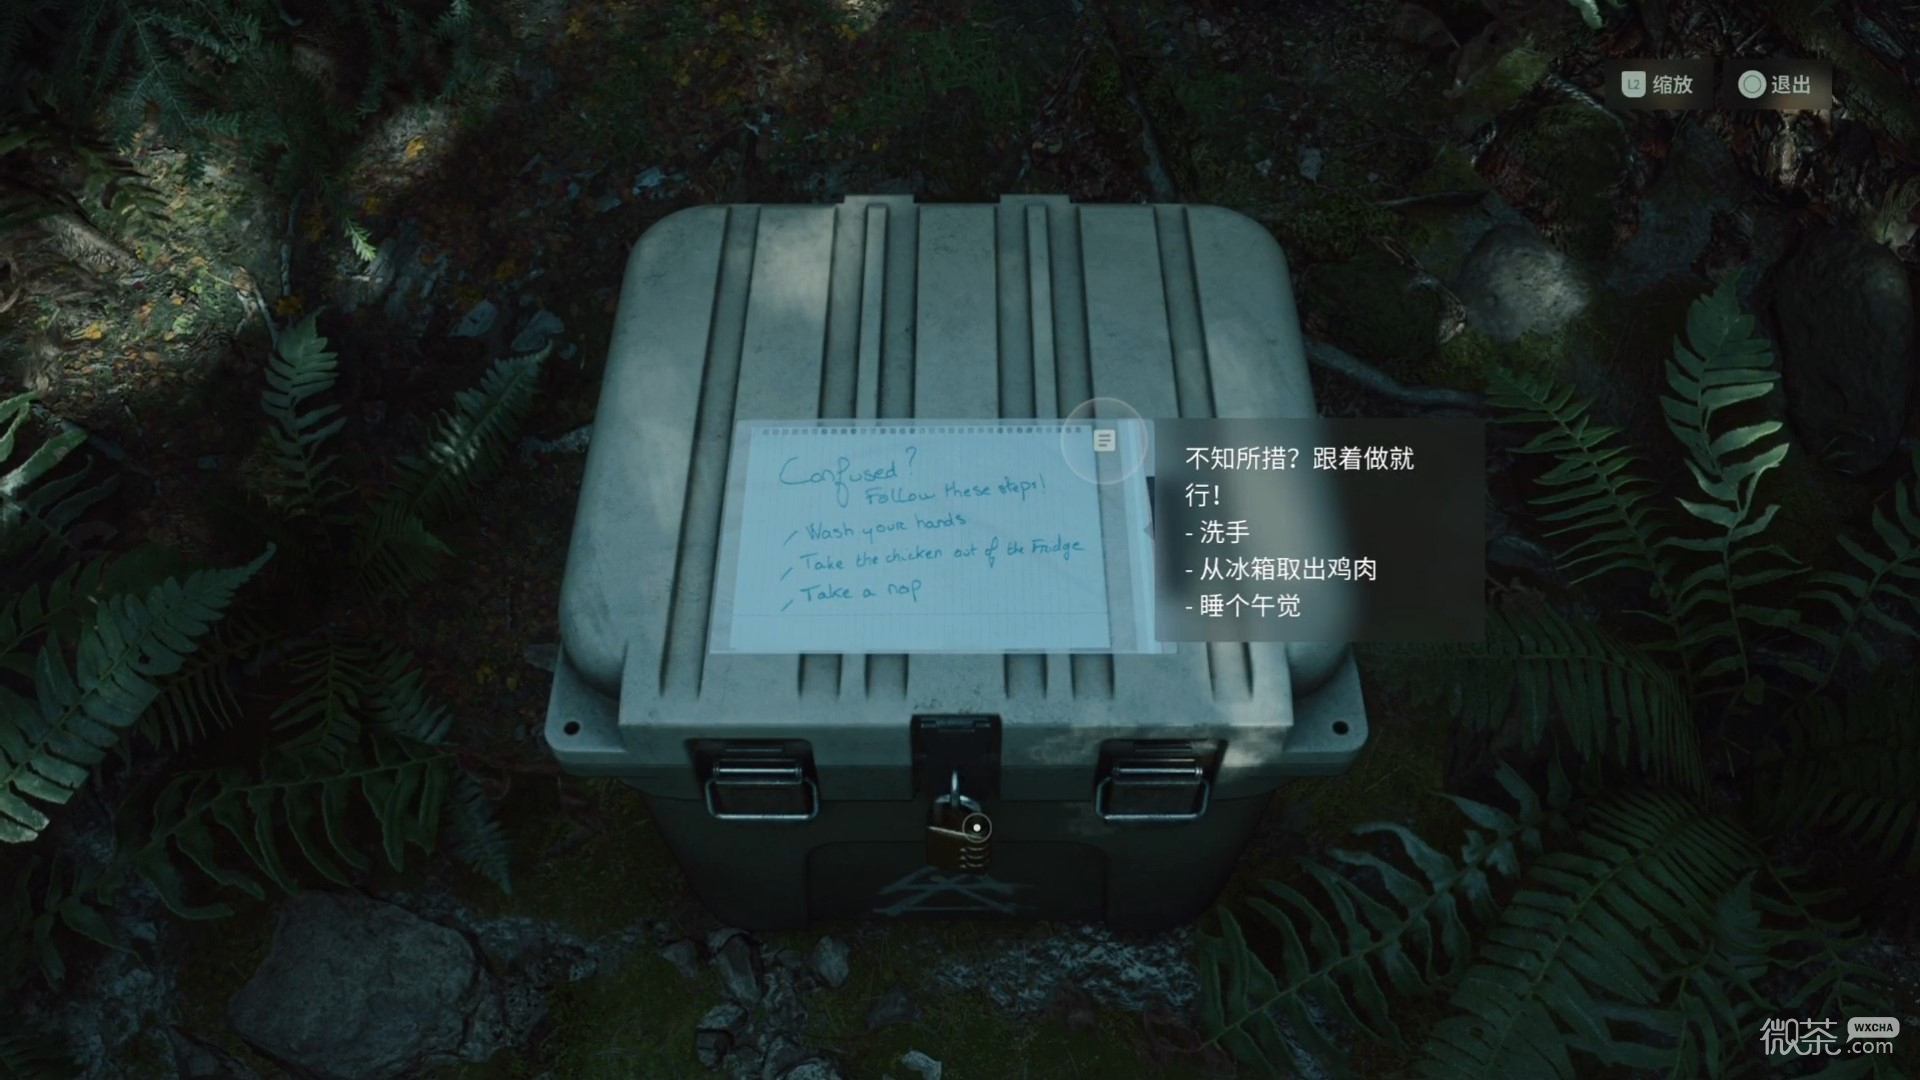 L2 缩放
退出
Confused?
Follow these steps!
- Wash your hands
- Take the chicken out of the Fridge
- Take a nap
不知所措？跟着做就
行！
- 洗手
- 从冰箱取出鸡肉
- 睡个午觉
微茶 WXCHA
.com